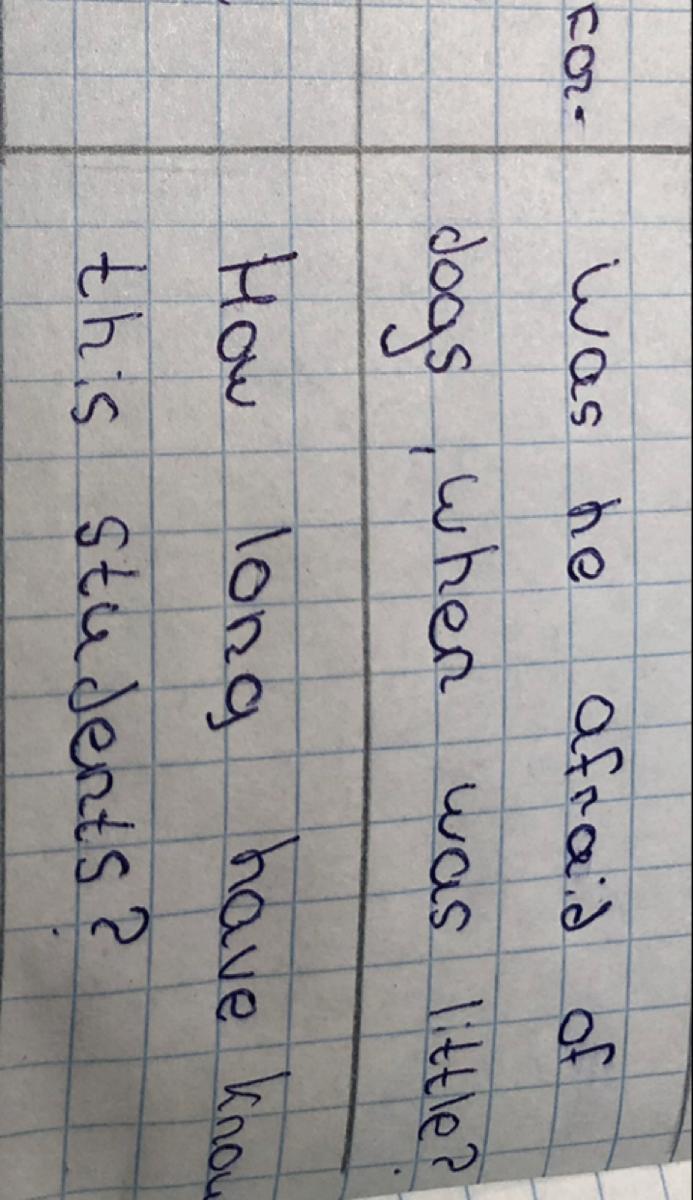 Was he afraid of
dogs, when was little?
How long have know
this students?